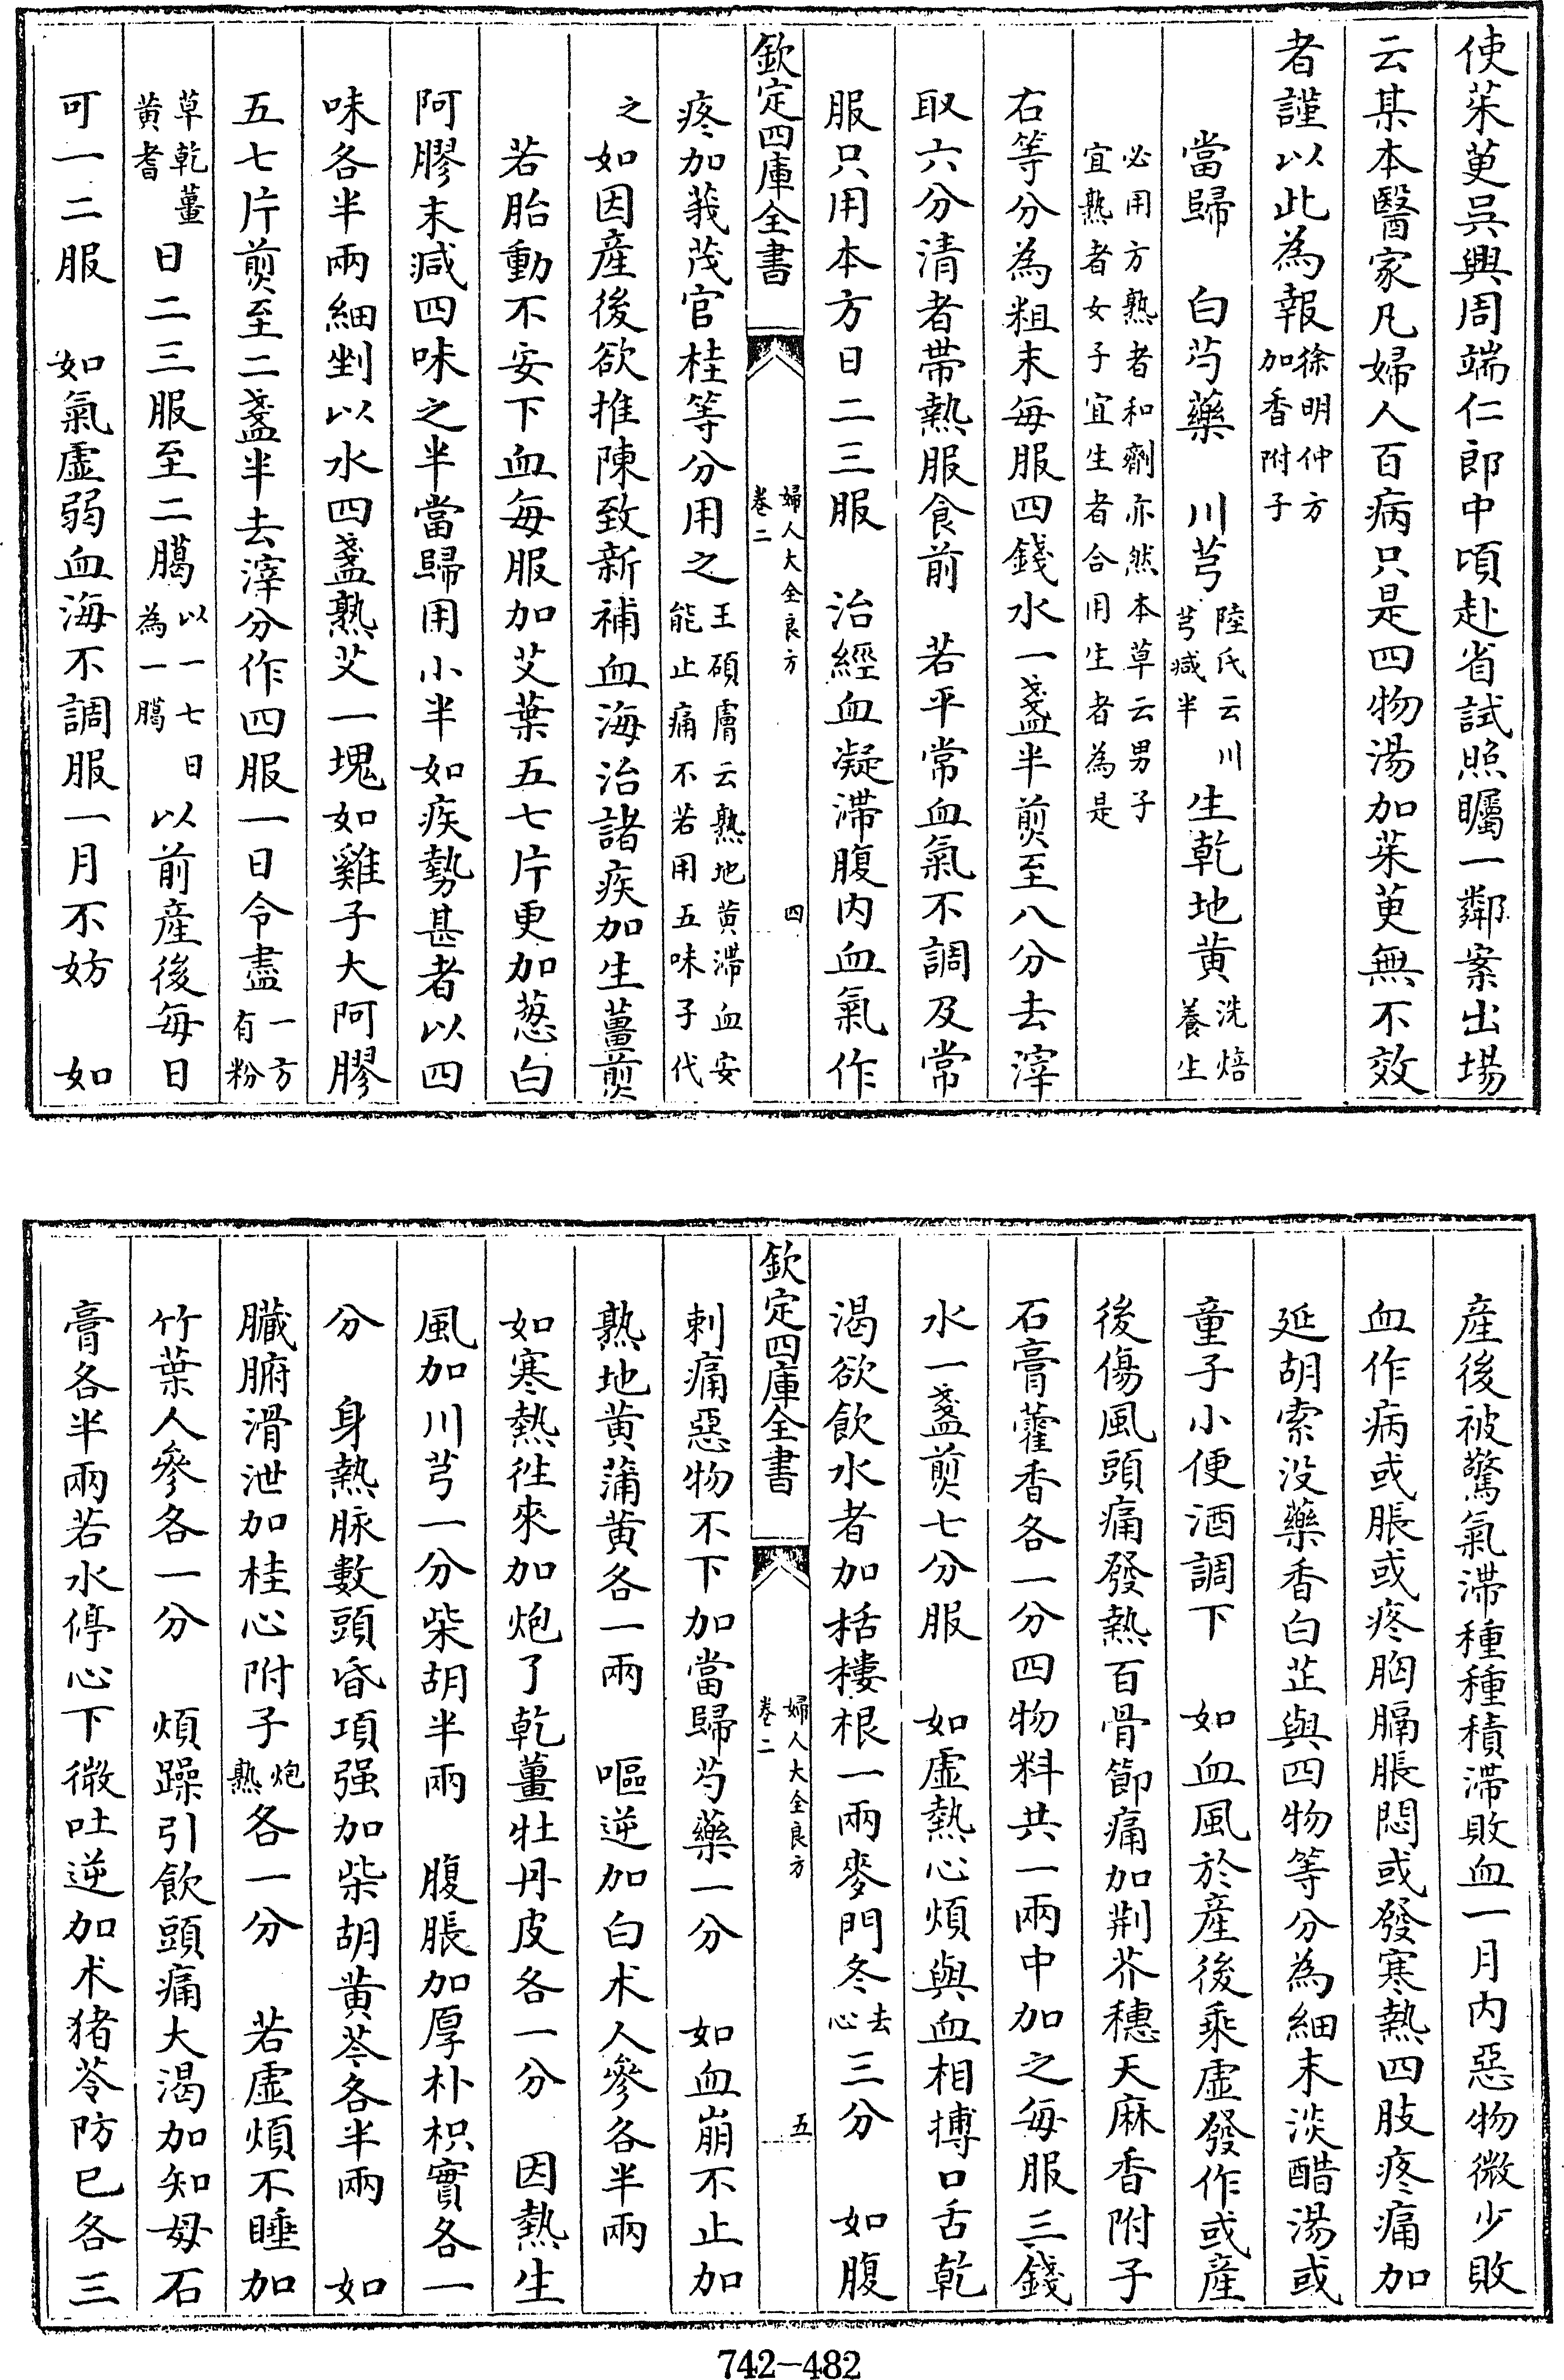 使茱萸吳興周端仁郎中頃赴省試照矚一鄰案出場
云某本醫家凡婦人百病只是四物湯加茱萸無不效
者謹以此為報徐明仲方加香附子
當歸　白芍藥　川芎陸氏云川芎減半生乾地黄洗焙養生
必用方熟者和劑亦然本草云男子宜熟者女子宜生者合用生者為是
右等分為粗末每服四錢水一盞半煎至八分去滓
取六分清者帶熱服食前　若平常血氣不調及常
服只用本方日二三服　治經血凝滯腹内血氣作
欽定四庫全書
婦人大全良方
卷二
四
疼加莪茂官桂等分用之王碩膚云熟地黄滯血安能止痛不若用五味子代
之如因産後欲推陳致新補血海治諸疾加生薑煎
若胎動不安下血每服加艾葉五七片更加葱白
阿膠末減四味之半當歸用小半如疾勢甚者以四
味各半兩細剉以水四盞熟艾一塊如雞子大阿膠
五七片煎至二盞半去滓分作四服一日令盡一方有粉
草乾薑黄耆日二三服至二臈以一七日為一臈以前産後每日
可一二服　如氣虚弱血海不調服一月不妨　如
産後被驚氣滯種種積滯敗血一月内惡物微少敗
血作病或脹或疼胸膈脹悶或發寒熱四肢疼痛加
延胡索没藥香白芷與四物等分為細末淡醋湯或
童子小便酒調下　如血風於産後乘虚發作或産
後傷風頭痛發熱百骨節痛加荆芥穗天麻香附子
石膏藿香各一分四物料共一兩中加之每服三錢
水一盞煎七分服　如虚熱心煩與血相搏口舌乾
渴欲飲水者加栝樓根一兩麥門冬去心三分　如腹
欽定四庫全書
婦人大全良方
卷二
五
刺痛惡物不下加當歸芍藥一分　如血崩不止加
熟地黄蒲黄各一兩　嘔逆加白术人參各半兩
如寒熱徃來加炮了乾薑牡丹皮各一分　因熱生
風加川芎一分柴胡半兩　腹脹加厚朴枳實各一
分　身熱脉數頭昏項强加柴胡黄芩各半兩　如
臟腑滑泄加桂心附子炮熟各一分　若虚煩不睡加
竹葉人參各一分　煩躁引飲頭痛大渴加知母石
膏各半兩若水停心下微吐逆加术猪苓防已各三
742-482